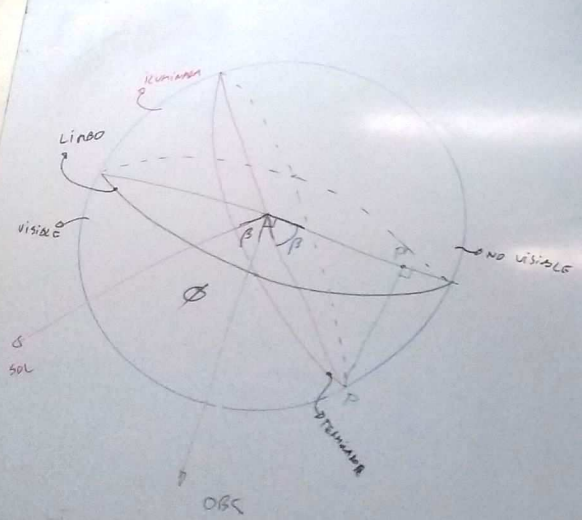 ILUMINADA
LIMBO
VISIBLE
β
β
NO VISIBLE
Ø
SOL
P
TERMINADOR
OBS